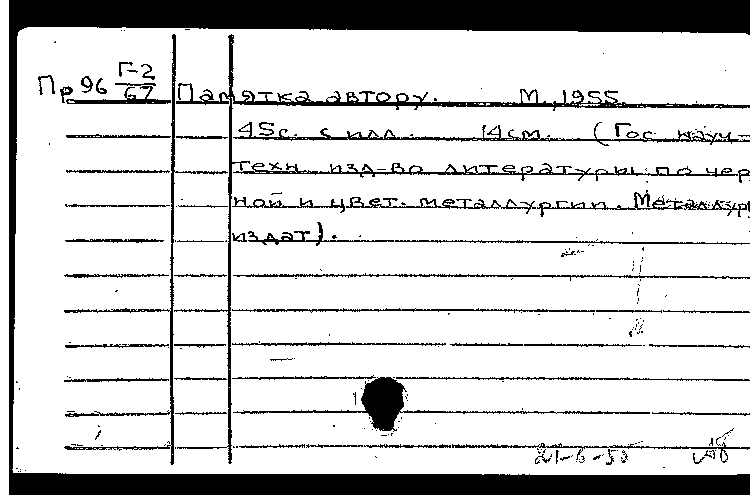 Пр 96 Г-2/67 Памятка автору. М., 1955.
45с. с илл. 14см. (Гос. науч-
техн. изд-во литературы по чер
ной и цвет. металлургии. Металлур
издат).
21-6-55